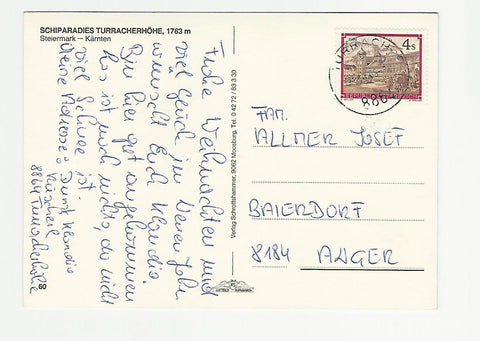 SCHIPARADIES TURRACHERHÖHE, 1763 m
Steiermark – Kärnten
Frohe Weihnachten und
viel Glück im Neuen Jahr
wünscht Euch Klaudia.
Bin hier gut angekommen
Los ist noch nichts, da nicht
viel Schnee ist.
Meine Adresse:
Klaudia
8864 Turracherhöhe
60
Verlag Schrottshammer, 9062 Moosburg, Tel. 0 42 72 / 83 3 30
4 S
REPUBLIK ÖSTERREICH
TURRACHER
8864
FAM.
ALLMER JOSEF
BAIERDORF
8184 ANGER